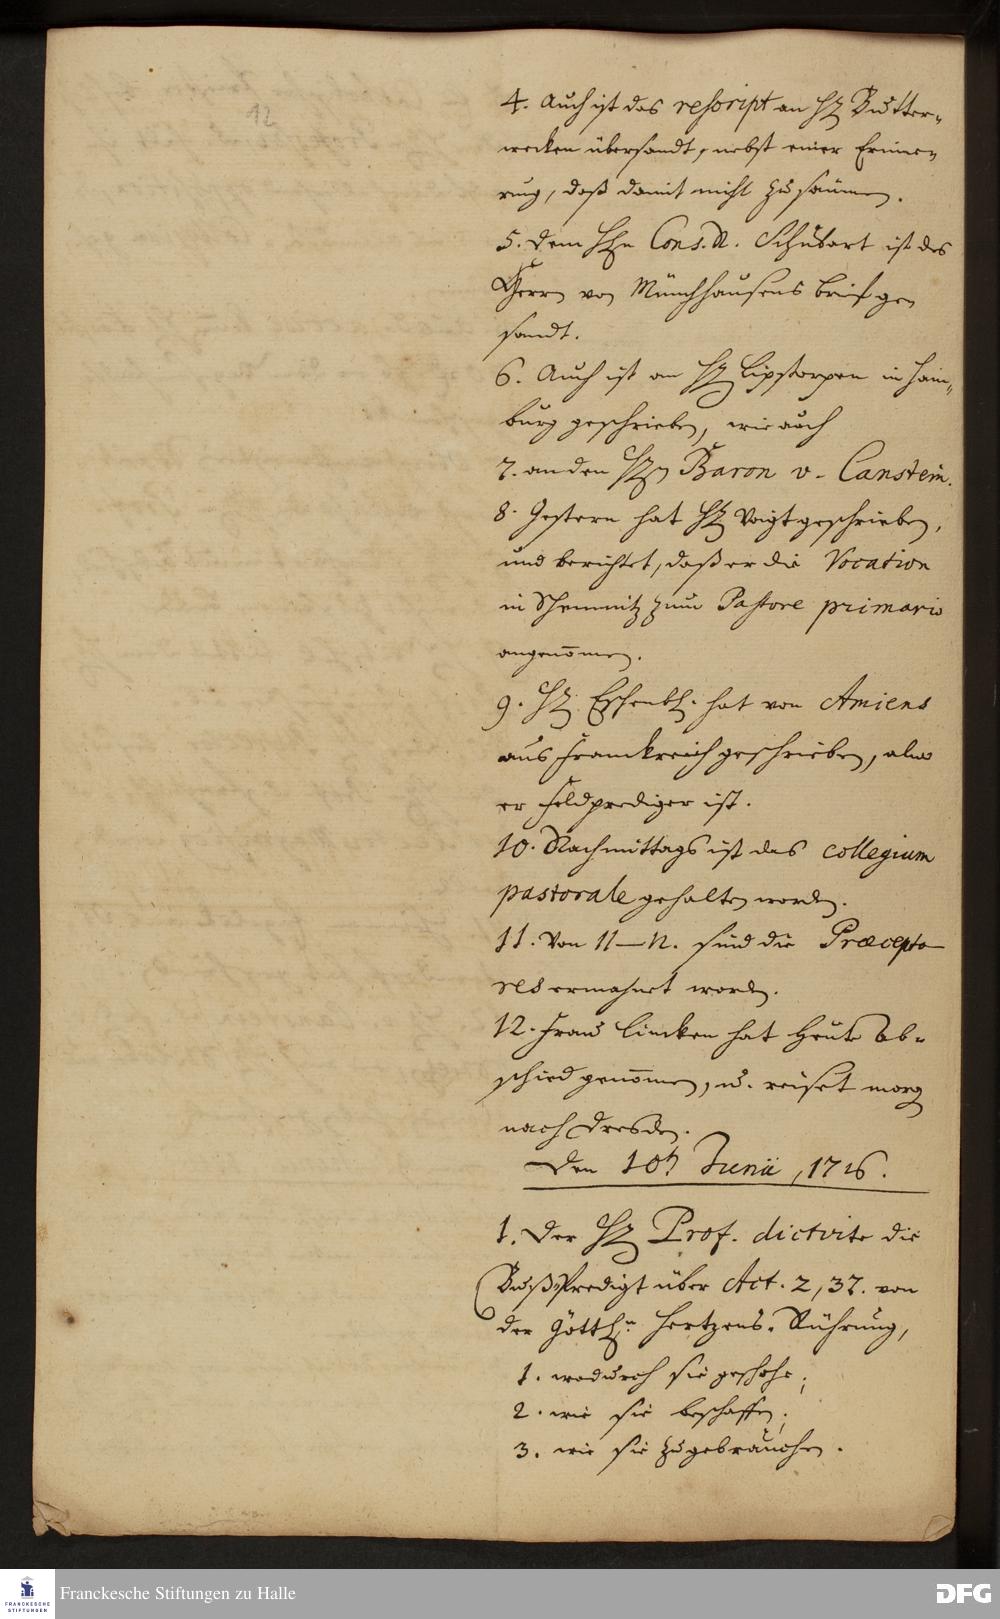 12
4. Auch ist das rescript an H. Butter-
wecken übersandt, nebst einer Erinne-
rung, daß damit nicht zu säumen.
5. dem Hn Cons. R. Schubart ist des
Herrn von Münchhausens brief ge
sandt.
6. Auch ist an H. Lipstorpen in Ham-
burg geschrieben, wie auch
7. an den Hn Baron v. Canstein.
8. Gestern hat H. Voigt geschrieben,
und berichtet, daß er die Vocation
in Schemnitz zum Pastore primario
angenom̄en.
9. H. Eschenb. hat von Amiens
aus Franckreich geschrieben, alwo
er Feldprediger ist.
10. Nachmittags ist das collegium
pastorale gehalten worden.
11. Von 11–12. sind die Præcepto
res ermahnet worden.
12. Frau Lincken hat heute Ab-
schied genom̄en, u. reiset morg
nach Dresden.
Den 10t Junii, 1716.
1. Der H. Prof. dictirte die
BußPredigt über Act. 2, 37. von
der Göttl. Hertzens-Rührung,
1. wodurch sie geschehe;
2. wie sie beschaffen;
3. wie sie zu gebrauchen.
FRANCKESCHE
STIFTUNGEN
Franckesche Stiftungen zu Halle
DFG